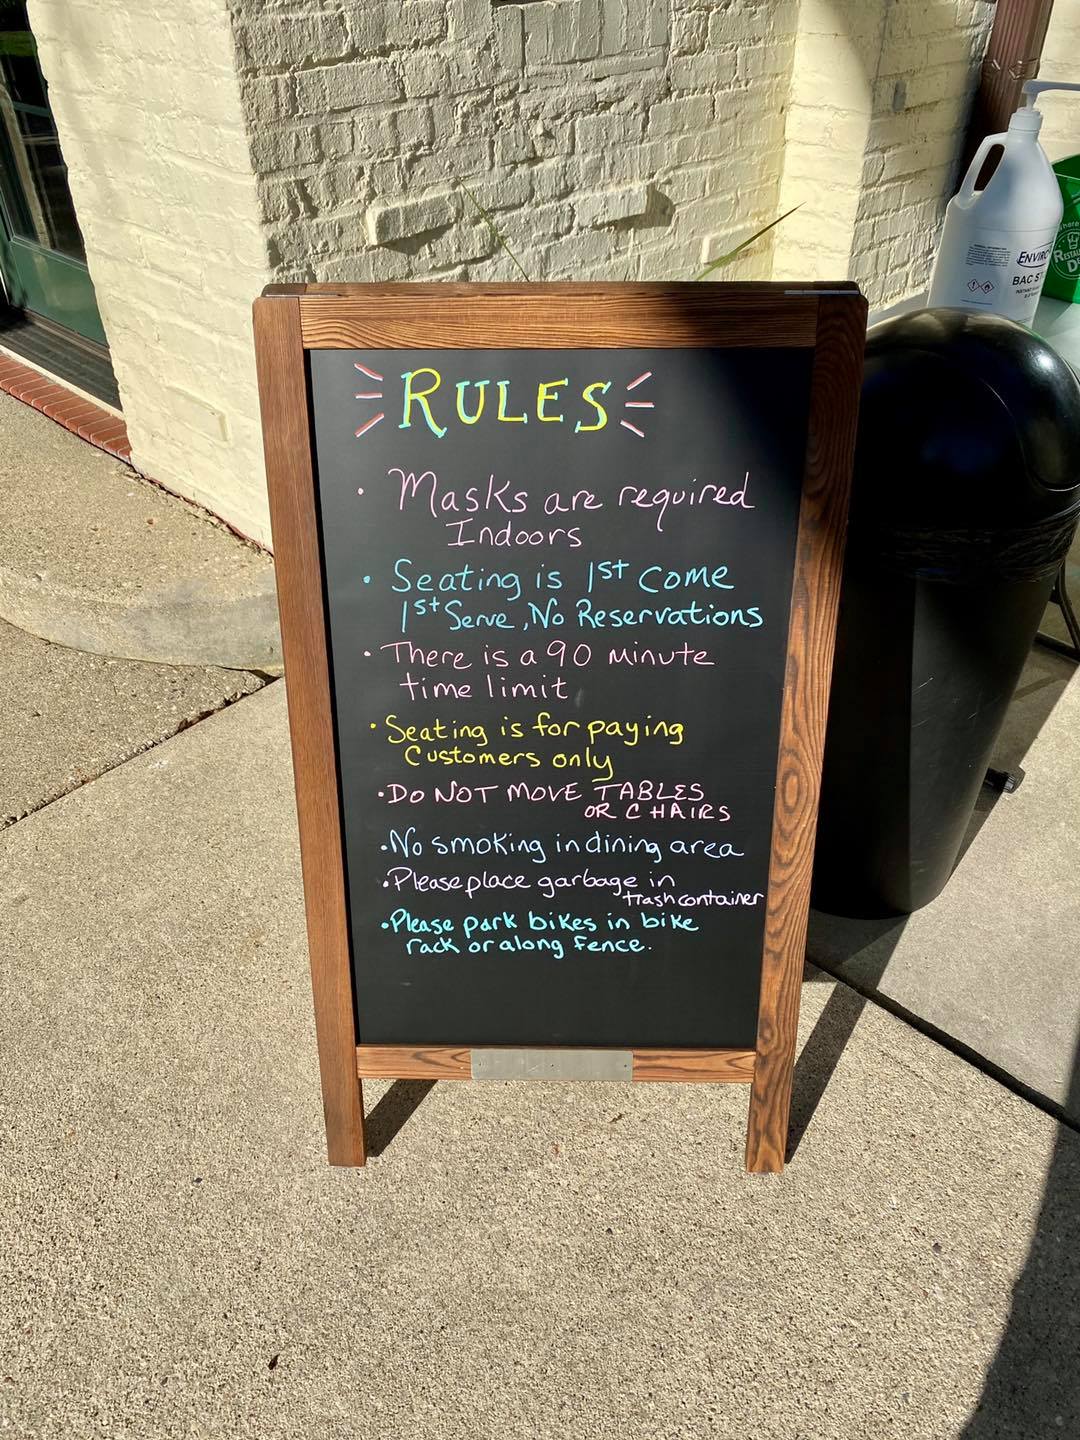 RULES
• Masks are required
Indoors
• Seating is 1st come
1st Serve, No Reservations
• There is a 90 minute
time limit
• Seating is for paying
Customers only
• DO NOT MOVE TABLES
OR CHAIRS
• No smoking in dining area
• Please place garbage in
trash container
• Please park bikes in bike
rack or along fence.
ENVIRO
BAC ST